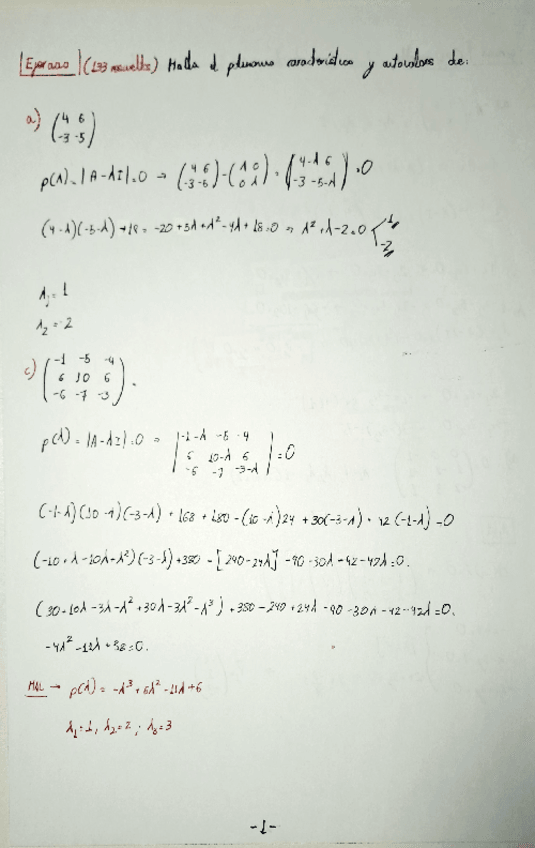 Ejercicio (133 resueltos) Halla el polinomio característico y autovalores de:
a) (4 6
-3 -5)
p(λ) = |A-λI| = 0 → (4 6 -3 -5) - (λ 0 0 λ) = (4-λ 6 -3 -5-λ) = 0
(4-λ)(-5-λ)+18 = -20+5λ+λ²-4λ+18=0 ⇒ λ²+λ-2=0 < 1 -2
λ₁ = 1
λ₂ = -2
c) (-1 -5 -4
6 10 6
-6 -7 -3)
p(λ) = |A-λI| = 0 = |-1-λ -5 -4
6 10-λ 6
-6 -7 -3-λ| = 0
(-1-λ)(10-λ)(-3-λ) + 168 + 180 - (10-λ)24 + 30(-3-λ) + 42(-1-λ) = 0
(-10+λ-10λ+λ²)(-3-λ) + 350 - [240-24λ] - 90 - 30λ - 42 - 42λ = 0.
(30-10λ-3λ-λ²+30λ-3λ²-λ³) + 350 - 240 + 24λ - 90 - 30λ - 42 - 42λ = 0.
-4λ² - 12λ + 38 = 0.
MAL → p(λ) = -λ³+6λ²-11λ+6
λ₁=1, λ₂=2; λ₃=3
-1-